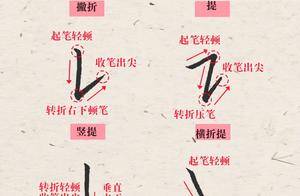 撇折
提
起笔轻顿
收笔出尖
转折右下顿笔
起笔轻顿
收笔出尖
转折压笔
竖提
横折提
转折轻顿
垂直
起笔轻顿